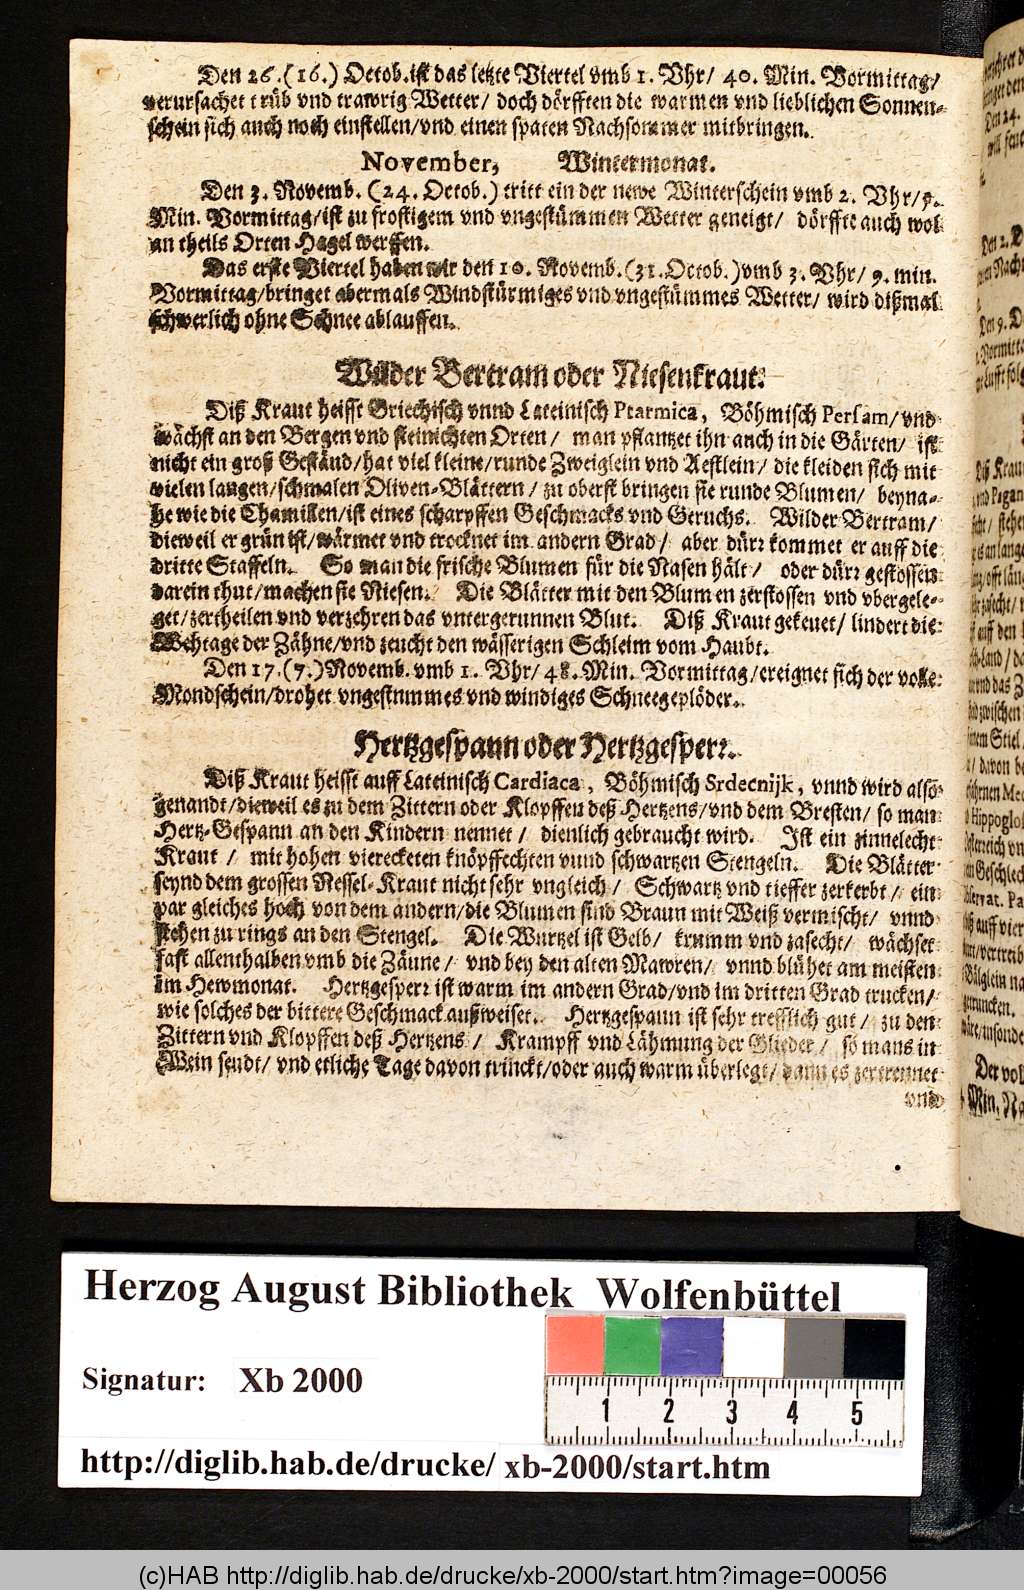 Den 26.(16.) Octob.ist das letzte Viertel vmb 1. Vhr/ 40. Min. Vormittag/
verursachet trüb vnd trawrig Wetter/ doch dörfften die warmen vnd lieblichen Sonnen-
schein sich auch noch einstellen/vnd einen spaten Nachsommer mitbringen.
November, Wintermonat.
Den 3. Novemb. (24. Octob.) tritt ein der newe Winterschein vmb 2. Vhr/ 5.
Min. Vormittag/ist zu frostigem vnd vngestümmen Wetter geneigt/ dörffte auch wol
an theils Orten Hagel werffen.
Das erste Viertel haben wir den 10. Novemb.(31.Octob.)vmb 3. Vhr/ 9. min.
Vormittag/bringet abermals Windstürmiges vnd vngestümmes Wetter/ wird dißmal
schwerlich ohne Schnee ablauffen.
Wilder Bertram oder Niesenkraut.
Diß Kraut heisst Griechisch vnnd Lateinisch Ptarmica, Böhmisch Persam/vnd
wächst an den Bergen vnd steinichten Orten/ man pflantzet ihn auch in die Gärten/ ist
nicht ein groß Geständ/hat viel kleine/runde Zweiglein vnd Aestlein/ die kleiden sich mit
vielen langen/schmalen Oliven-Blättern/ zu oberst bringen sie runde Blumen/ beyna-
he wie die Chamillen/ist eines scharpffen Geschmacks vnd Geruchs. Wilder Bertram/
dieweil er grün ist/wärmet vnd trocknet im andern Grad/ aber dürr kommet er auff die
dritte Staffeln. So man die frische Blumen für die Nasen hält/ oder dürr gestossen
darein thut/machen sie Niesen. Die Blätter mit den Blumen zerstossen vnd vbergele-
get/zertheilen vnd verzehren das vntergerunnen Blut. Diß Kraut gekeuet/ lindert die
Wehtage der Zähne/vnd zeucht den wässerigen Schleim vom Haubt.
Den 17.(7.)Novemb. vmb 1. Vhr/ 48. Min. Vormittag/ereignet sich der volle
Mondschein/drohet vngestummes vnd windiges Schneegeplöder.
Hertzgespann oder Hertzgesperr.
Diß Kraut heisst auff Lateinisch Cardiaca, Böhmisch Srdecnijk, vnnd wird also
genandt/dieweil es zu dem Zittern oder Klopffen deß Hertzens/vnd dem Bresten/ so man
Hertz-Gespann an den Kindern nennet/ dienlich gebraucht wird. Ist ein zinnelecht
Kraut/ mit hohen vierecketen knöpffechten vnnd schwartzen Stengeln. Die Blätter
seynd dem grossen Nessel-Kraut nicht sehr vngleich/ Schwartz vnd tieffer zerkerbt/ ein
par gleiches hoch von dem andern/die Blumen sind Braun mit Weiß vermischt/ vnnd
stehen zu rings an den Stengel. Die Wurtzel ist Gelb/ krumm vnd zasecht/ wächset
fast allenthalben vmb die Zäune/ vnd bey den alten Mawren/ vnnd blühet am meisten
im Hewmonat. Hertzgesperr ist warm im andern Grad/vnd im dritten Grad trucken/
wie solches der bittere Geschmack außweiset. Hertzgespann ist sehr trefflich gut/ zu den
Zittern vnd Klopffen deß Hertzens/ Krampff vnd Lähmung der Glieder/ so mans in
Wein seudt/ vnd etliche Tage davon trinckt/oder auch warm überlegt/ dann es zertrennet
vnd
Herzog August Bibliothek Wolfenbüttel
Signatur: Xb 2000
1 2 3 4 5
http://diglib.hab.de/drucke/ xb-2000/start.htm
(c)HAB http://diglib.hab.de/drucke/xb-2000/start.htm?image=00056